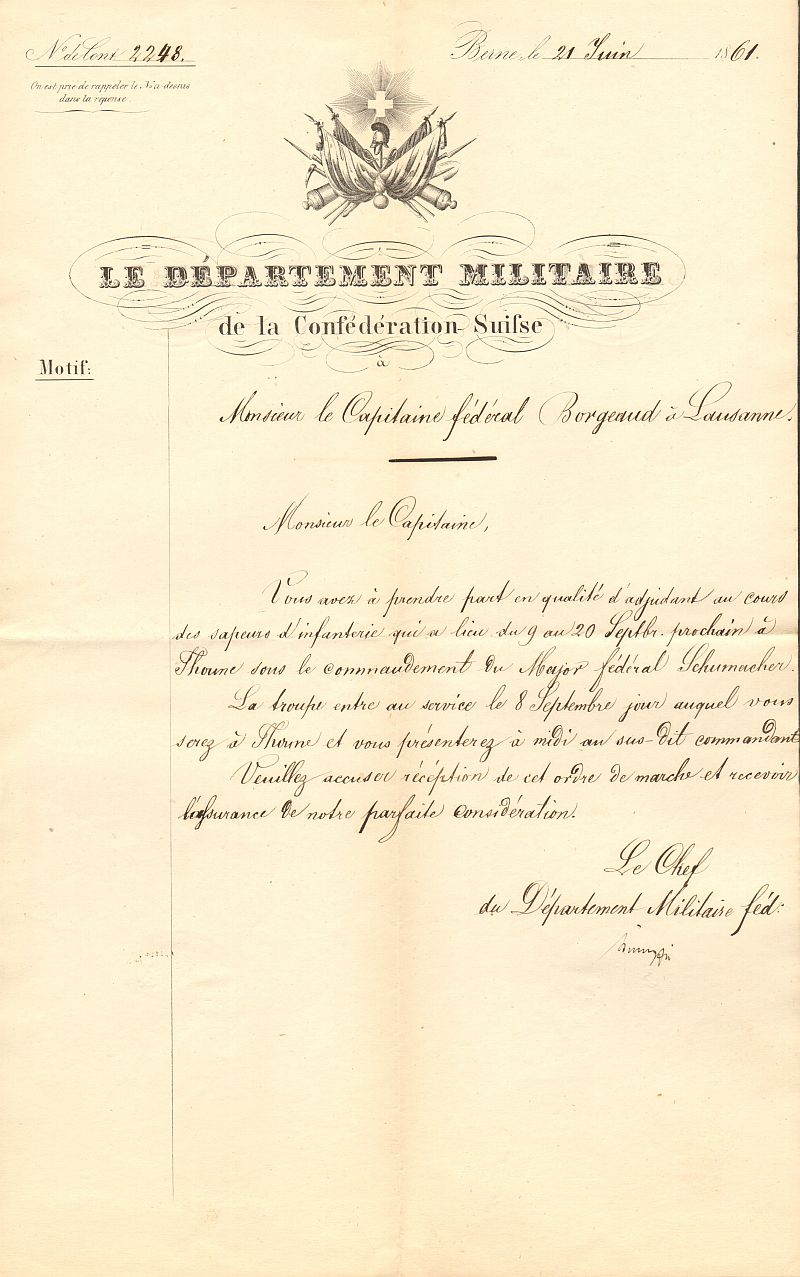 No. de Cont 2248.
Berne, le 21 Juin 1861.
On est prié de rappeler le No. ci-dessus
dans la réponse.
LE DÉPARTEMENT MILITAIRE
de la Confédération Suiſse
à
Motif:
Monsieur le Capitaine fédéral Borgeaud à Lausanne.
Monsieur le Capitaine,
Vous avez à prendre part en qualité d'adjudant au cours
des sapeurs d'infanterie qui a lieu du 9 au 20 Septbr. prochain à
Thoune sous le commandement du Major fédéral Schumacher.
La troupe entre au service le 8 Septembre jour auquel vous
serez à Thoune et vous présenterez à midi au sus-dit commandant
Veuillez accuser récéption de cet ordre de marche et recevoir
l'aſsurance de notre parfaite considération.
Le Chef
du Département Militaire féd: